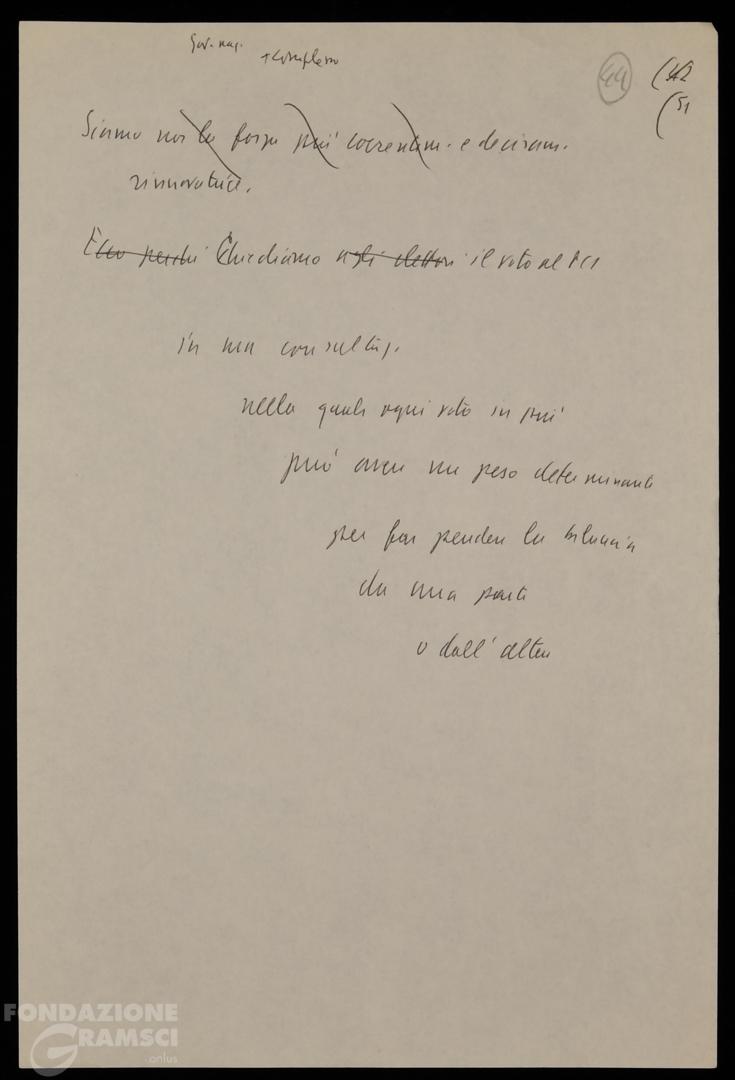 44
(51
Siamo noi la forza più coerentem. e decisam.
rinnovatrice.
Ecco perché Chiediamo agli elettori il voto al PCI
in una consultaz.
nella quale ogni voto in più
può avere un peso determinante
per far pendere la bilancia
da una parte
o dall'altra
FONDAZIONE
GRAMSCI
onlus